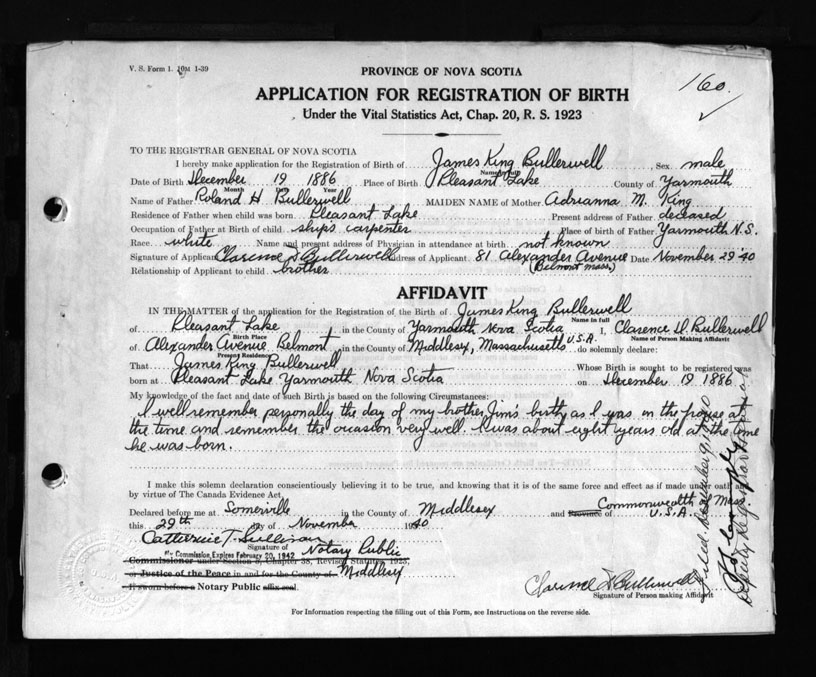 V. S. Form 1. 10M 1-39
PROVINCE OF NOVA SCOTIA
160.
APPLICATION FOR REGISTRATION OF BIRTH
Under the Vital Statistics Act, Chap. 20, R. S. 1923
TO THE REGISTRAR GENERAL OF NOVA SCOTIA
I hereby make application for the Registration of Birth of James King Bullerwell Sex male
Name in full
Date of Birth December 19 1886 Place of Birth Pleasant Lake County of Yarmouth
Month Day Year
Name of Father Roland H Bullerwell MAIDEN NAME of Mother Adrianna M. King
Residence of Father when child was born Pleasant Lake Present address of Father deceased
Occupation of Father at Birth of child ships carpenter Place of birth of Father Yarmouth N.S.
Race white Name and present address of Physician in attendance at birth not known
Signature of Applicant Clarence D Bullerwell Address of Applicant 81 Alexander Avenue Date November 29 '40
Relationship of Applicant to child brother (Belmont Mass.)
AFFIDAVIT
IN THE MATTER of the application for the Registration of the Birth of James King Bullerwell
Name in full
of Pleasant Lake in the County of Yarmouth Nova Scotia I, Clarence D. Bullerwell
Birth Place Name of Person Making Affidavit
of Alexander Avenue Belmont in the County of Middlesex, Massachusetts U.S.A. do solemnly declare:
Present Residence
That James King Bullerwell Whose Birth is sought to be registered was
born at Pleasant Lake Yarmouth Nova Scotia on December 19 1886
My knowledge of the fact and date of such Birth is based on the following Circumstances:
I well remember personally the day of my brother Jim's birth, as I was in the house at
the time and remember the occasion very well. I was about eight years old at the time
he was born.
I make this solemn declaration conscientiously believing it to be true, and knowing that it is of the same force and effect as if made under oath and
by virtue of The Canada Evidence Act.
Declared before me at Somerville in the County of Middlesex and Province of Commonwealth of Mass
U.S.A.
this 29th day of November 1940
Catherine T. Sullivan
Signature of Notary Public
My Commission Expires February 20, 1942
Commissioner under Section 8, Chapter 38, Revised Statutes 1923,
or Justice of the Peace in and for the County of Middlesex
If sworn before a Notary Public affix seal.
Clarence D Bullerwell
Signature of Person making Affidavit
For Information respecting the filling out of this Form, see Instructions on the reverse side.
Filed December 9 1940
Deputy Registrar General